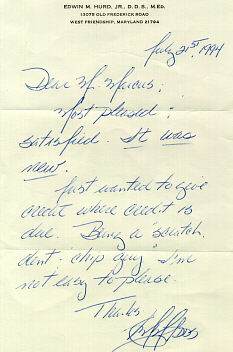 EDWIN M. HURD, JR., D.D.S., M.ED.
13075 OLD FREDERICK ROAD
WEST FRIENDSHIP, MARYLAND 21794
July 21st, 1994
Dear Mr. Marcus;
Most pleased;
satisfied. It was
new.
Just wanted to give
credit where credit is
due. Being a "scratch
dent - chip guy" I'm
not easy to please.
Thanks